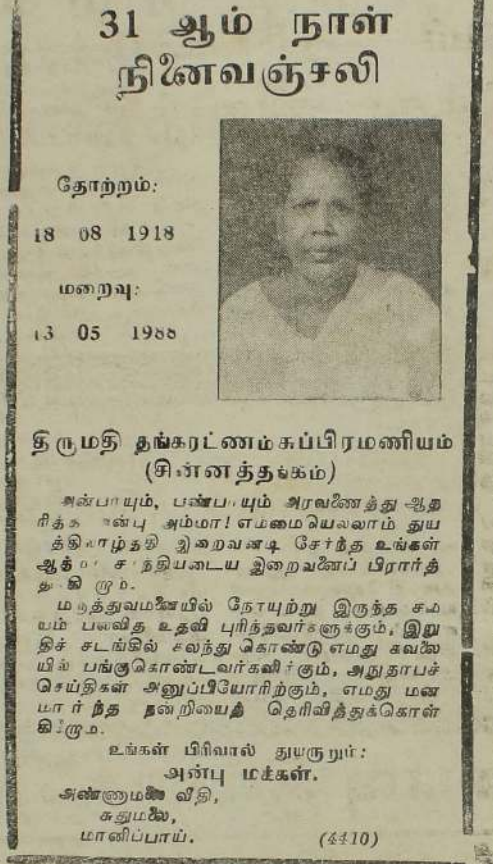 31 ஆம் நாள்
நினைவஞ்சலி
தோற்றம்:
18 08 1918
மறைவு:
13 05 1988
திருமதி தங்கரட்ணம் சுப்பிரமணியம்
(சின்னத்தங்கம்)
அன்பாயும், பண்பாயும் அரவணைத்து ஆத
ரித்த அன்பு அம்மா! எம்மையெலலாம் துய
த்திலாழ்த்தி இறைவனடி சேர்ந்த உங்கள்
ஆத்மா சாந்தியடைய இறைவனைப் பிரார்த்
துகிறோம்.
மருத்துவமனையில் நோயுற்று இருந்த சம
யம் பலவித உதவி புரிந்தவர்களுக்கும், இறு
திச் சடங்கில் கலந்து கொண்டு எமது கவலை
யில் பங்குகொண்டவர்கவிற்கும், அநுதாபச்
செய்திகள் அனுப்பியோரிற்கும், எமது மன
மார்ந்த நன்றியைத் தெரிவித்துக்கொள்
கிறோம்.
உங்கள் பிரிவால் துயருறும்:
அன்பு மக்கள்.
அண்ணாமலை வீதி,
சுதுமலை,
மானிப்பாய். (4410)